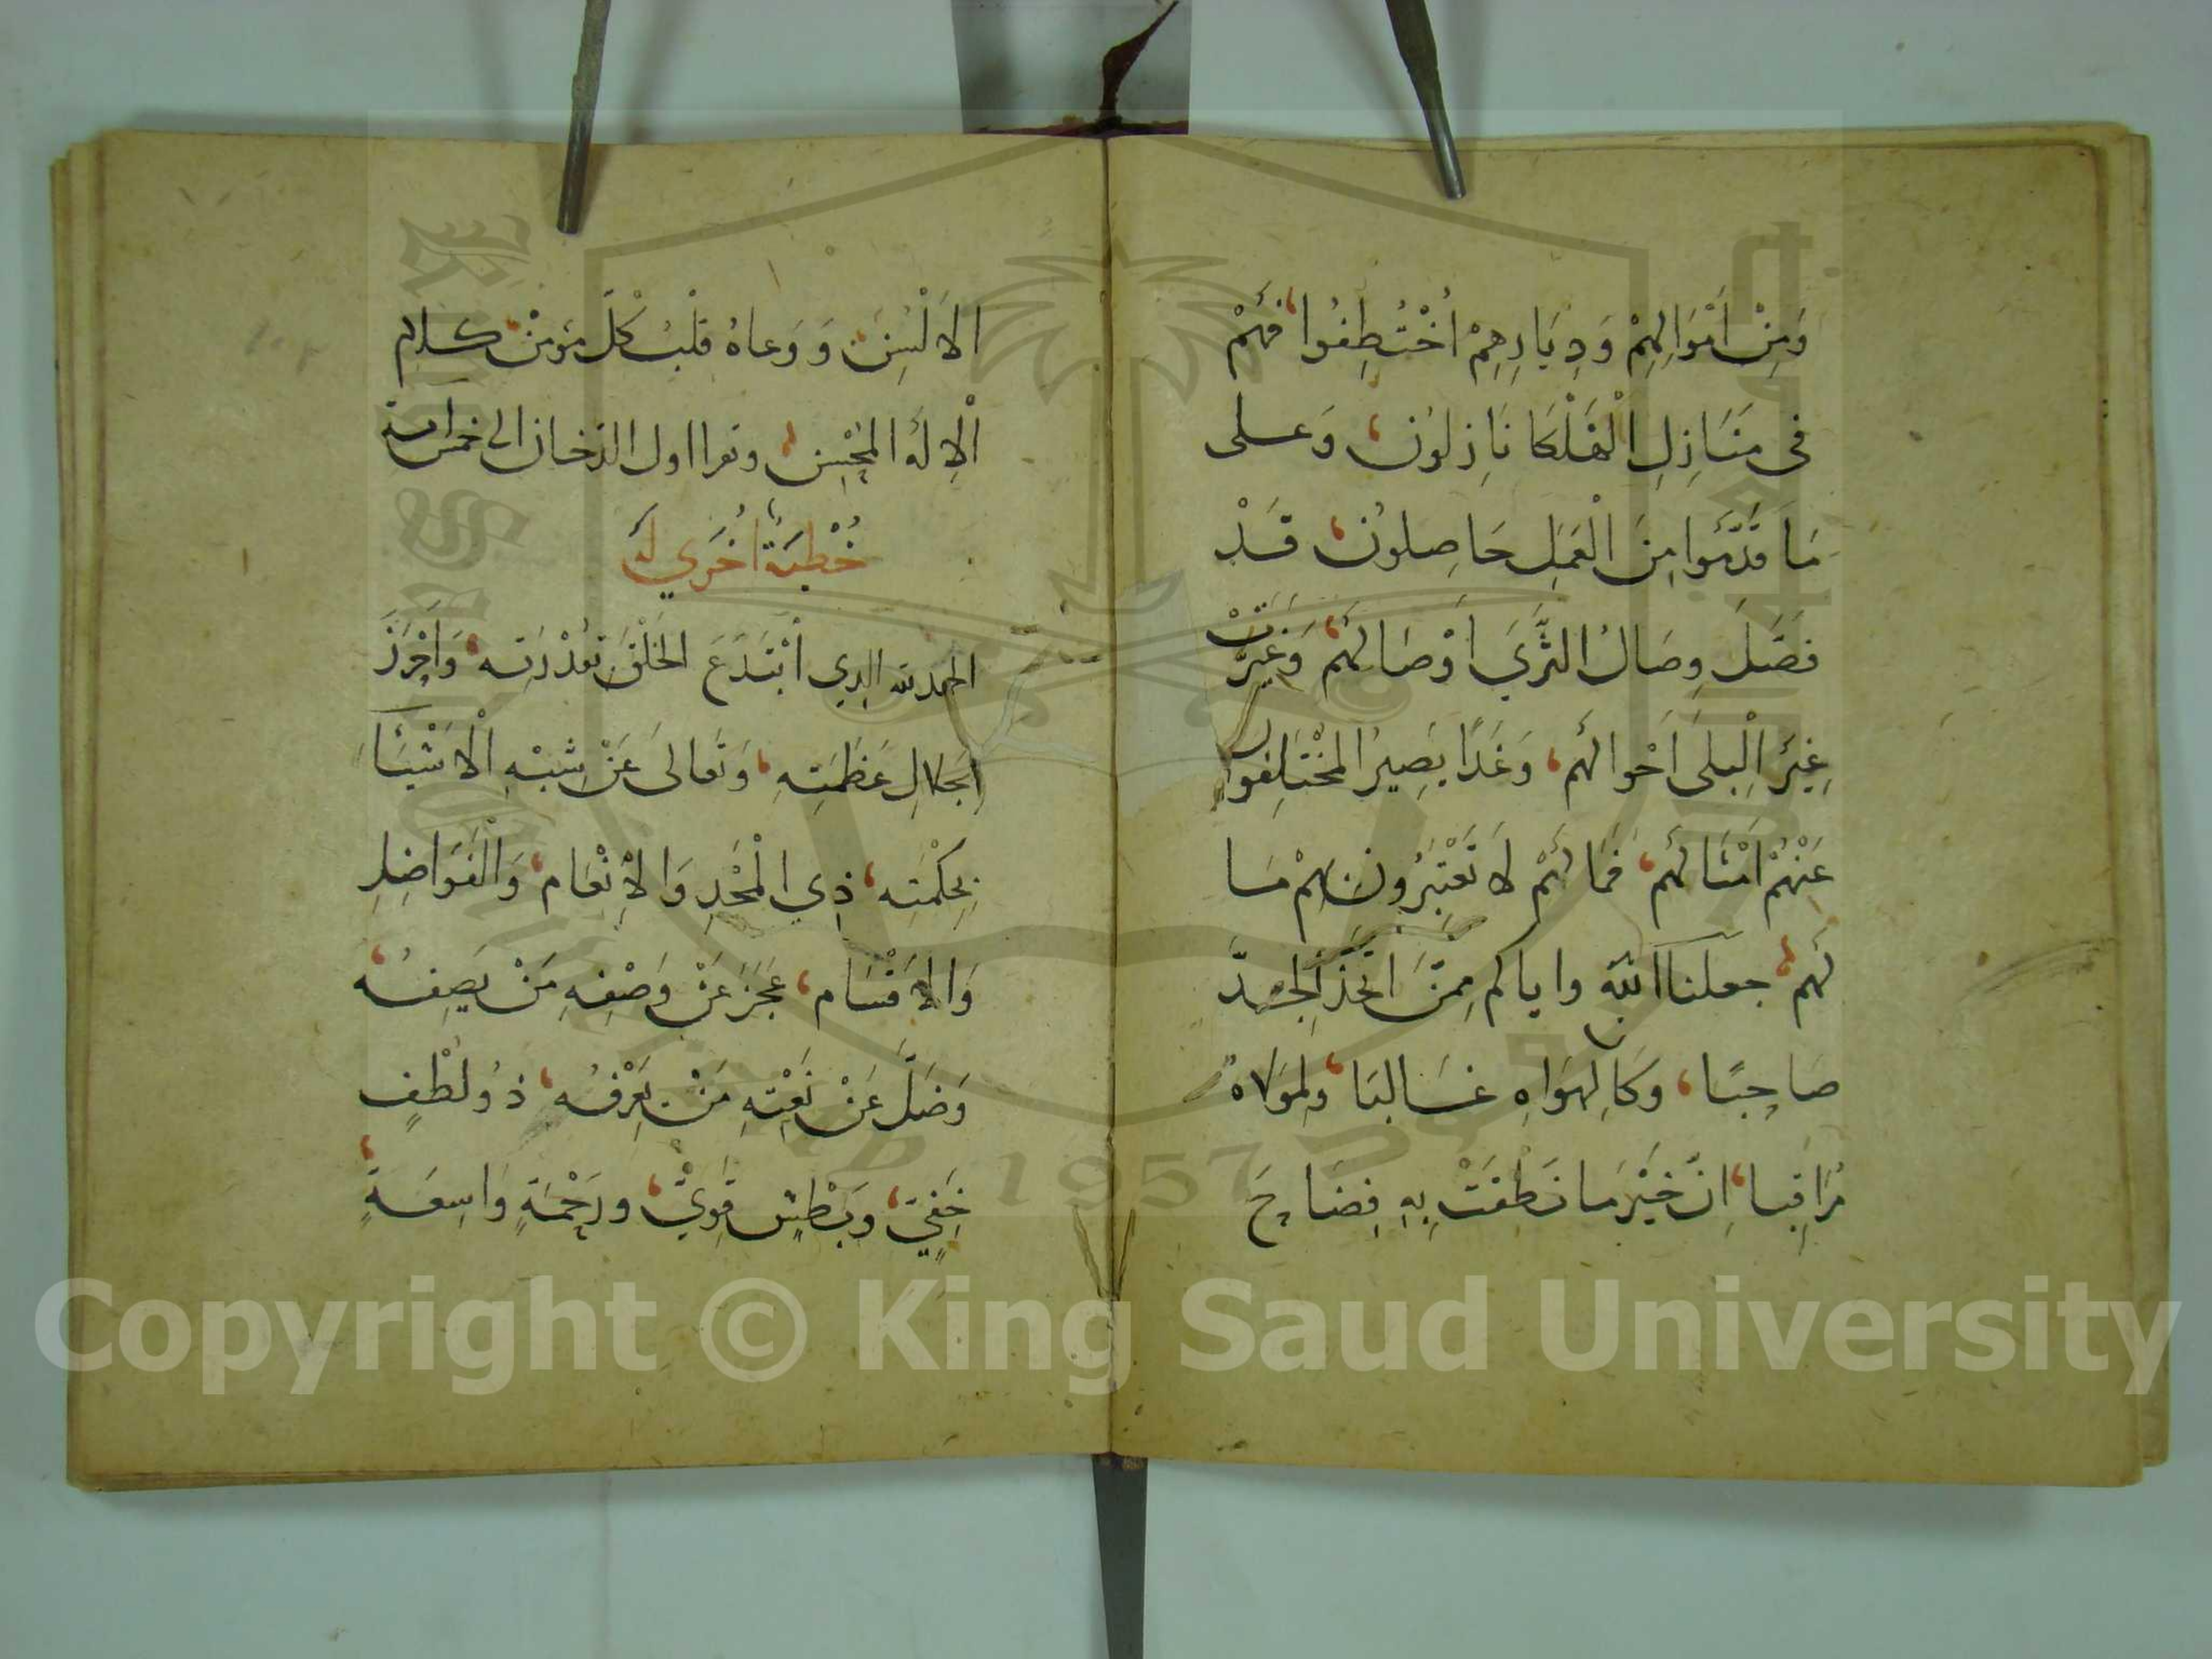 وَمِنْ اَمْوَالِهِمْ وَدِيَارِهِمْ اُخْتُطِفُوا، فَهُمْ
فى مَنَازِلِ الْهَلْكَا نَازِلُون، وَعَلى
مَا قَدَّمُوا مِنَ الْعَمَلِ حَاصِلوُن، قَدْ
فَصَّلَ وِصَالُ الثَّرَي أَوْصَالَهُمْ، وَغَيَّرَتْ
غِيَرُ الْبِلَى اَحْوالَهُم، وَغَدًا يَصِيرُ المُخْتَلِفُوا
عَنْهُمْ اَمْثَالَهُم، فَمَا لَهُمْ لاَ تَعْتَبِرُونَ بِهِمْ مَا
لَهُم، جعلنا الله واياكم مِمَّنَ اتَّخَذَ الجِدَّ
صَاحِبًا، وَكَانَ لِهَوَاهِ غَالِبًا، وَلِمَوْلاهُ
مُرَاقِبا، اِنَّ خَيْرَ مَا نَطَقَتْ بِهِ فِصَاحَ
الاَلْسِنَ، وَوَعاهُ قَلْبُ كُلِّ مؤمنْ، كلام
الْاِلهِ المُحْسِن، وتقرا اول الدخان الى خمس اية
خُطْبَةُ اُخْرَي لَهُ
الحمد لله الذي اَبْتَدَعَ الخَلْقَ بِقُدْرَتِه، وَاَحْرَزَ
الجَلالِ عَظَمَتِهِ، وَتَعَالىَ عَنْ شِبْهِ الْاَشْيَا
بِحِكْمَتِه، ذِي الْمَجْدِ وَالْاِنْعَام، وَالْفَوَاضِلِ
وَالاَقْسَام، عَجَزَ عَنْ وَصْفِهِ مَنْ يَصِفُه،
وَضَلَّ عَنْ نَعْتِهِ مَنْ يَعْرِفُه، ذوُ لُطْفٍ
خَفِيّ، وَبَطْشٍ قَوِيّ، ورَحْمَةٍ وَاسِعَةٍ،
Copyright © King Saud University
1957